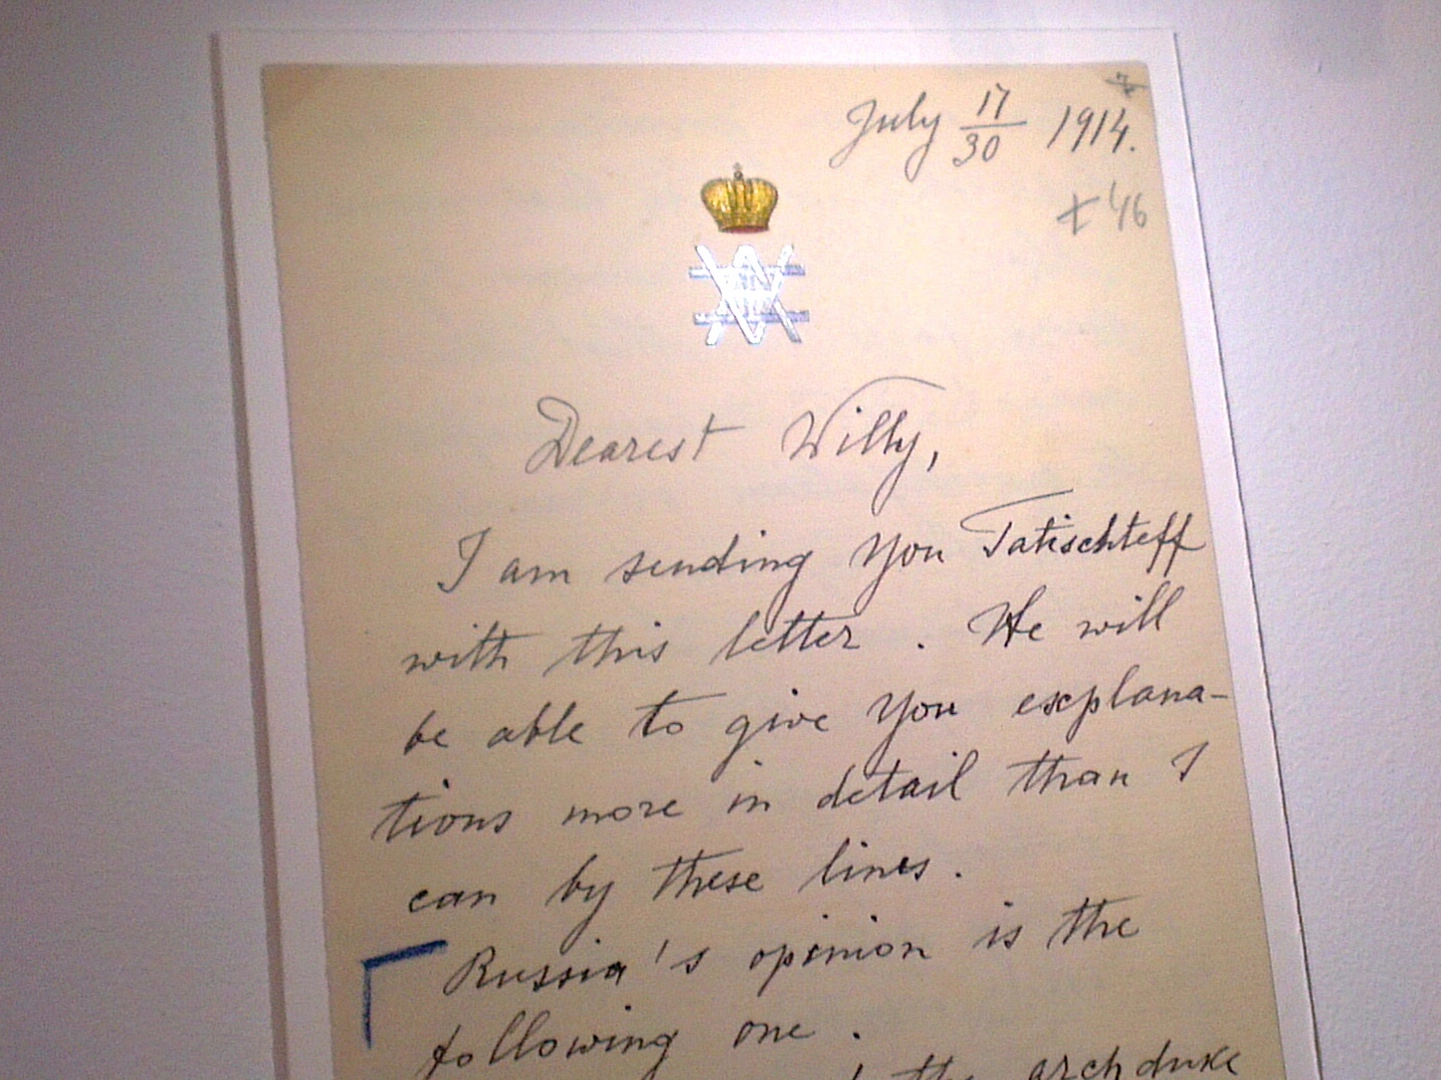 July 17/30 1914.
46
Dearest Willy,
I am sending You Tatischteff
with this letter. He will
be able to give You explana-
tions more in detail than I
can by these lines.
Russia's opinion is the
following one.
the archduke